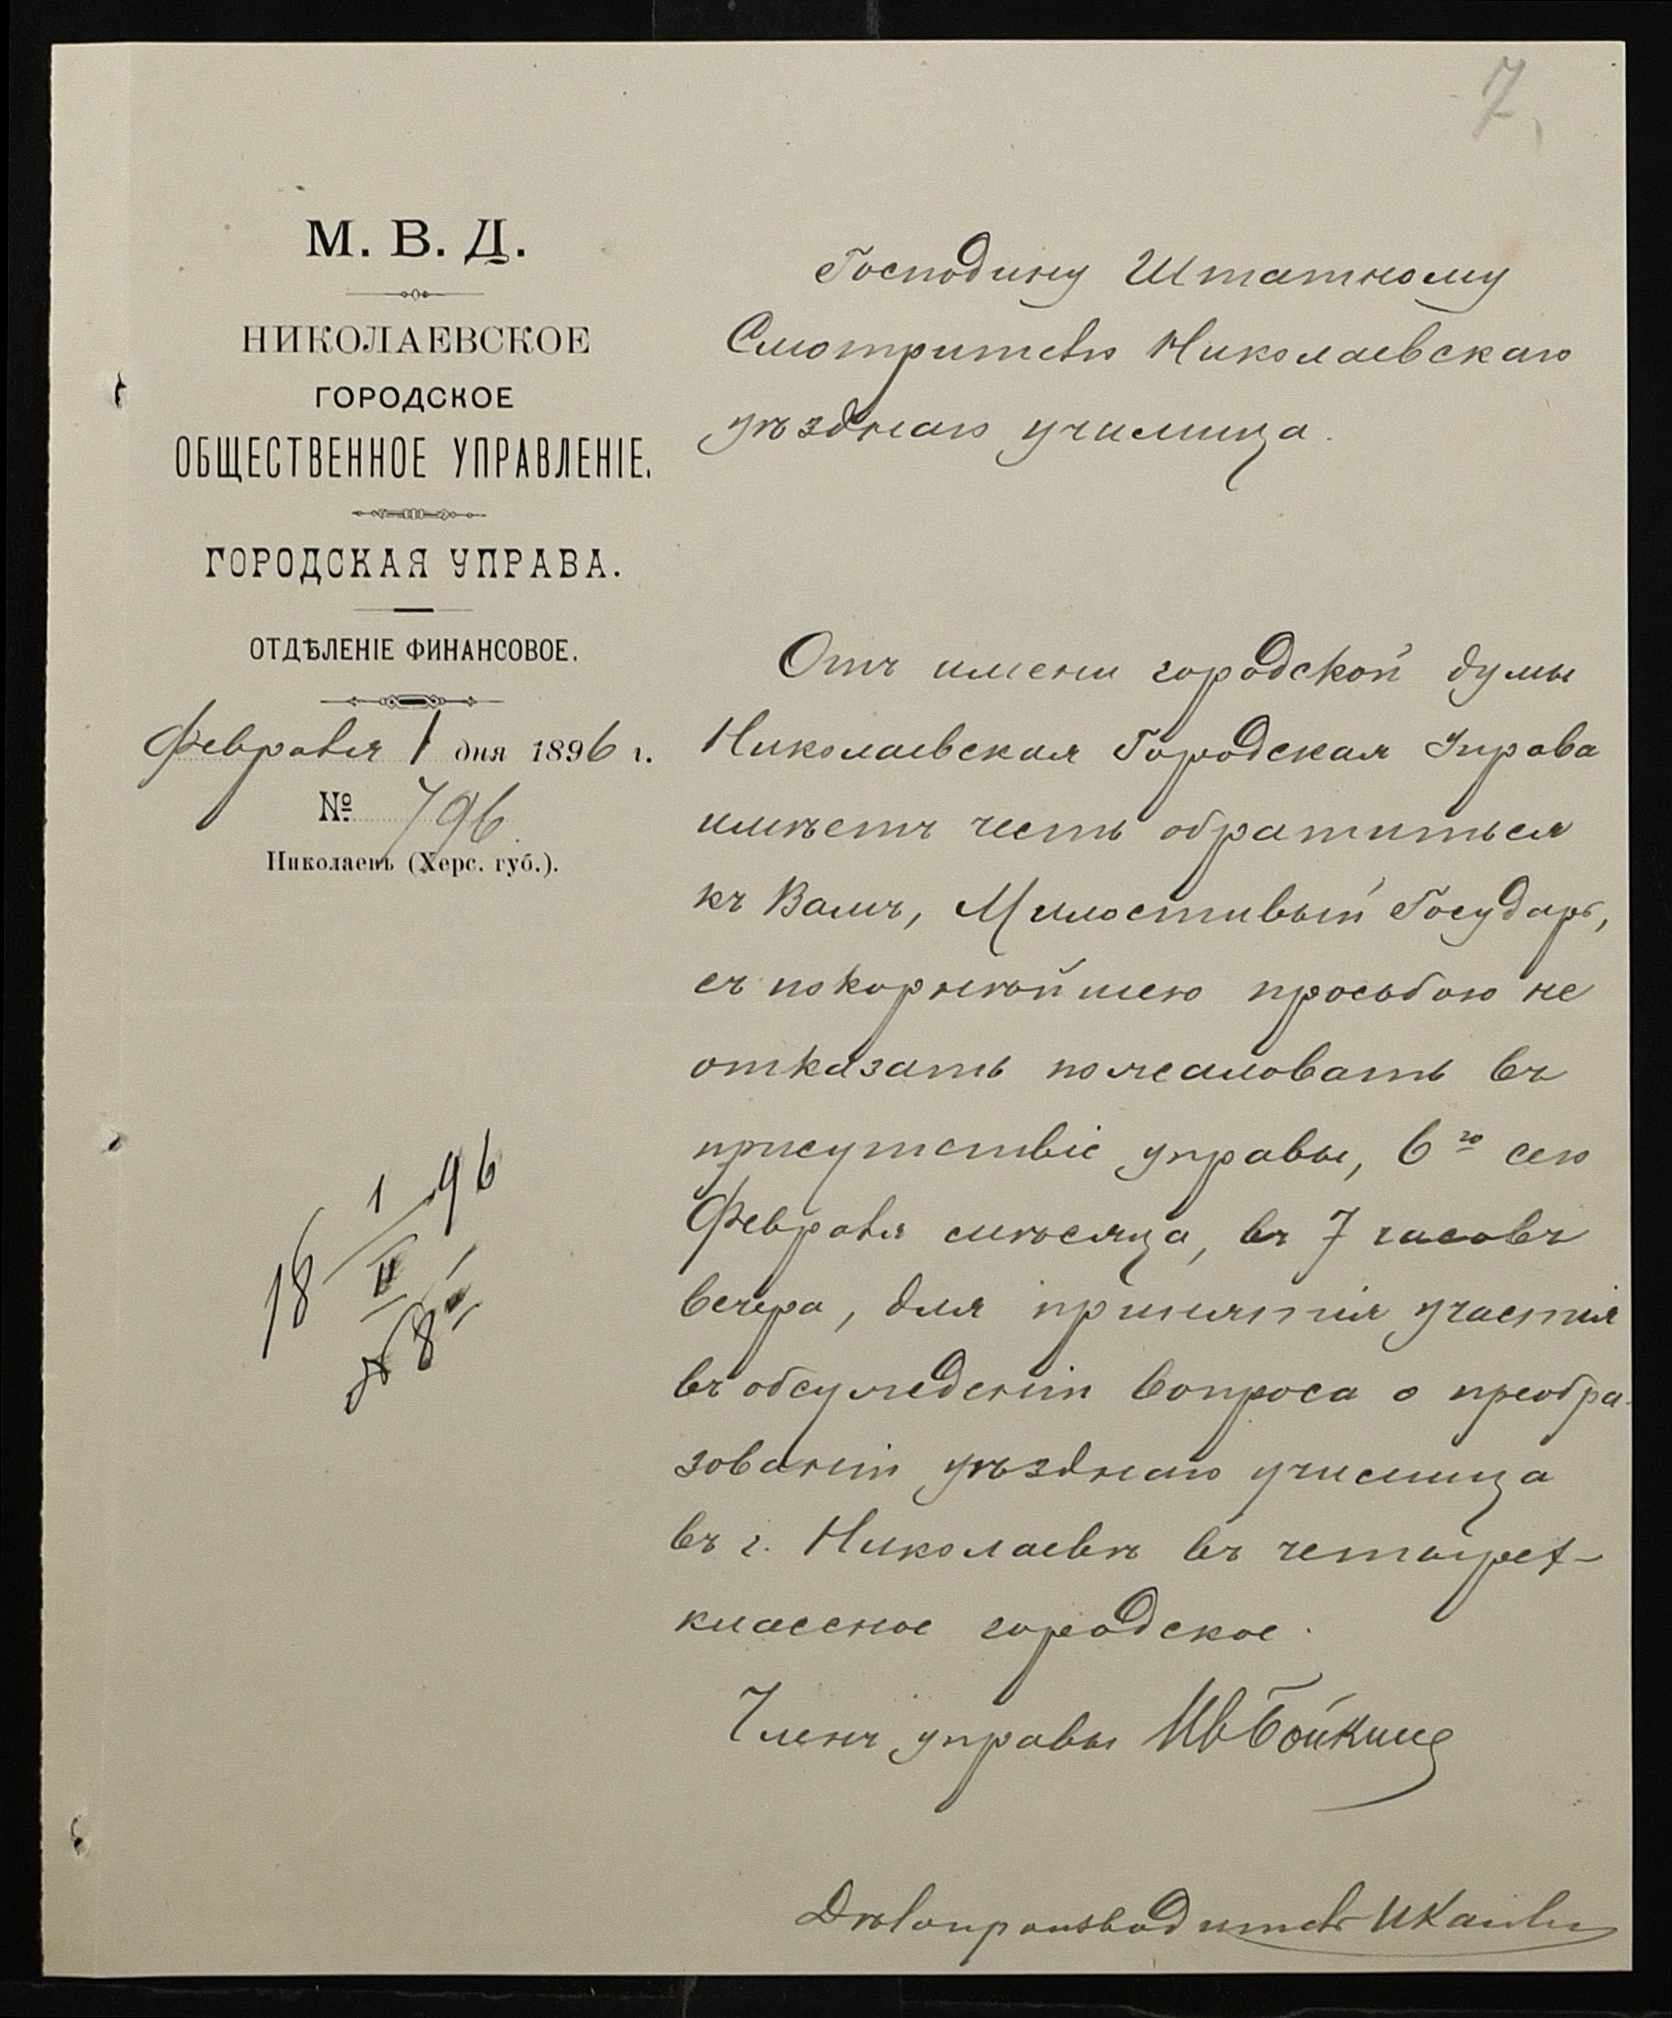 7
М. В. Д.
НИКОЛАЕВСКОЕ
ГОРОДСКОЕ
ОБЩЕСТВЕННОЕ УПРАВЛЕНІЕ.
ГОРОДСКАЯ УПРАВА.
ОТДѢЛЕНІЕ ФИНАНСОВОЕ.
Февраля 1 дня 1896 г.
№ 796.
Николаевъ (Херс. губ.).
18 1/II 96
№ 8
Господину Штатному
Смотрителю Николаевскаго
уѣзднаго училища.
Отъ имени городской думы
Николаевская Городская Управа
имѣетъ честь обратиться
къ Вамъ, Милостивый Государь,
съ покорнѣйшею просьбою не
отказать пожаловать въ
присутствіе управы, 6го сего
Февраля мѣсяца, въ 7 часовъ
вечера, для принятія участія
въ обсужденіи вопроса о преобра-
зованіи уѣзднаго училища
въ г. Николаевѣ въ четырех-
классное городское.
Членъ управы
Дѣлопроизводитель